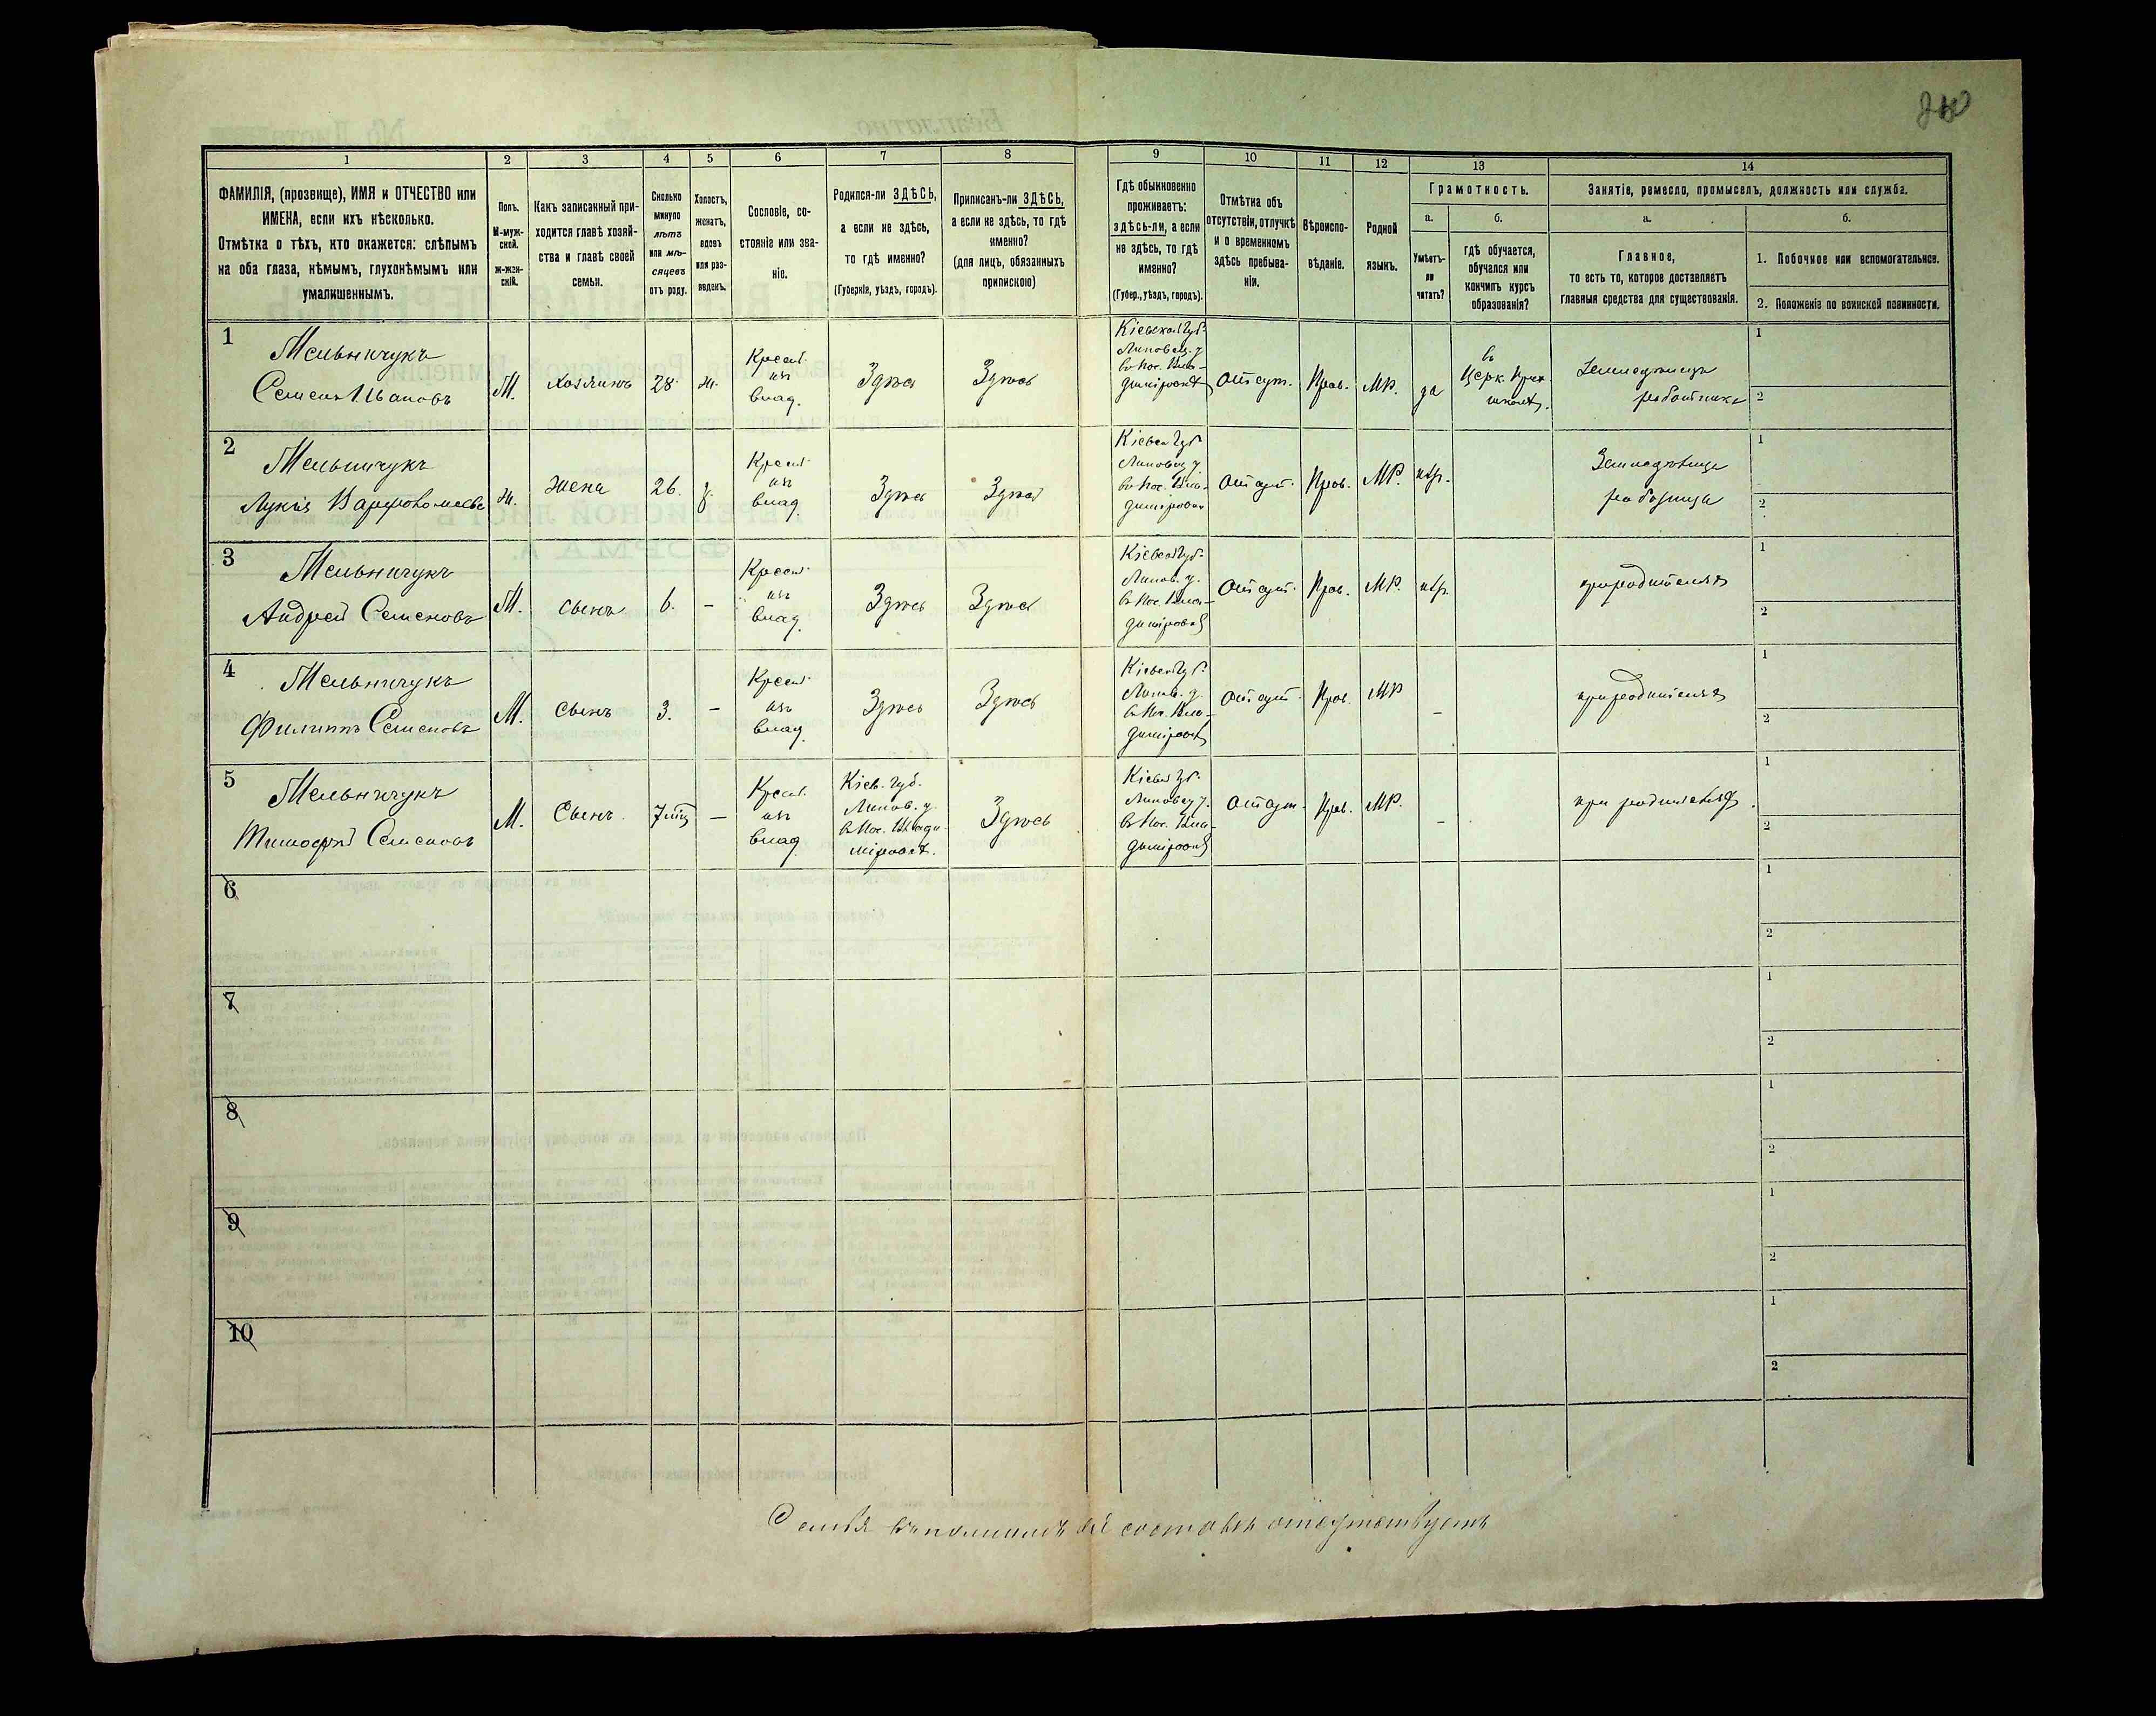 1 2 3 4 5 6 7 8 9 10 11 12 13 14
ФАМИЛІЯ, (прозвище), ИМЯ и ОТЧЕСТВО или
ИМЕНА, если ихъ нѣсколько.
Отмѣтка о тѣхъ, кто окажется: слѣпымъ
на оба глаза, нѣмымъ, глухонѣмымъ или
умалишеннымъ.
Полъ.
М-муж-
ской.
ж-жен-
скій.
Какъ записанный при-
ходится главѣ хозяй-
ства и главѣ своей
семьи.
Сколько
минуло
лѣтъ
или мѣ-
сяцевъ
отъ роду.
Холостъ,
женатъ,
вдовъ
или раз-
веденъ.
Сословіе, со-
стояніе или зва-
ніе.
Родился-ли ЗДѢСЬ,
а если не здѣсь,
то гдѣ именно?
(Губернія, уѣздъ, городъ).
Приписанъ-ли ЗДѢСЬ,
а если не здѣсь, то гдѣ
именно?
(для лицъ, обязанныхъ
припискою)
Гдѣ обыкновенно
проживаетъ:
здѣсь-ли, а если
не здѣсь, то гдѣ
именно?
(Губер., уѣздъ, городъ).
Отмѣтка объ
отсутствіи, отлучкѣ
и о временномъ
здѣсь пребыва-
ніи.
Вѣроиспо-
вѣданіе.
Родной
языкъ.
Грамотность.
а.
Умѣетъ-
ли
читать?
б.
гдѣ обучается,
обучался или
кончилъ курсъ
образованія?
Занятіе, ремесло, промыселъ, должность или служба.
а.
Главное,
то есть то, которое доставляетъ
главныя средства для существованія.
б.
1. Побочное или вспомогательное.
2. Положеніе по воинской повинности.
1
Мельничукъ
Семенъ Ивановъ
М.
хозяинъ
28.
ж.
Крест.
изъ
влад.
Здѣсь
Здѣсь
Кіевской Губ.
Липовец. у.
въ Пос. Вла-
диміровкѣ
Отсут.
Прав.
МР.
да
въ
Церк. Прих.
школѣ.
Земледѣлецъ
работникъ
1
2
2
Мельничукъ
Лукія Варфоломеева
Ж.
жена
26.
з.
Крест.
изъ
влад.
Здѣсь
Здѣсь
Кіевск Губ.
Липовец у.
въ Пос. Вла-
диміровкѣ
Отсут.
Прав.
МР.
нѣт.
Земледѣлица
работница
1
2
3
Мельничукъ
Андрей Семеновъ
М.
сынъ
6.
–
Крест.
изъ
влад.
Здѣсь
Здѣсь
Кіевск Губ.
Липов. у.
въ Пос. Вла-
диміровкѣ
Отсут.
Прав.
МР.
нѣт.
при родителяхъ
1
2
4
Мельничукъ
Филиппъ Семеновъ
М.
сынъ
3.
–
Крест.
изъ
влад.
Здѣсь
Здѣсь
Кіевск Губ.
Липов. у.
въ Пос. Вла-
диміровкѣ
Отсут.
Прав.
МР
–
при родителяхъ
1
2
5
Мельничукъ
Тимофей Семеновъ
М.
Сынъ
7 мѣс
–
Крест.
изъ
влад.
Кіев. Губ.
Липов. у.
въ Пос. Влади-
міровкѣ.
Здѣсь
Кіевск Губ.
Липовец у.
въ Пос. Вла-
диміровкѣ
Отсут.
Прав.
МР.
–
при родителяхъ
1
2
6
1
2
7
1
2
8
1
2
9
1
2
10
1
2
Семья въ полномъ её составѣ отсутствуетъ